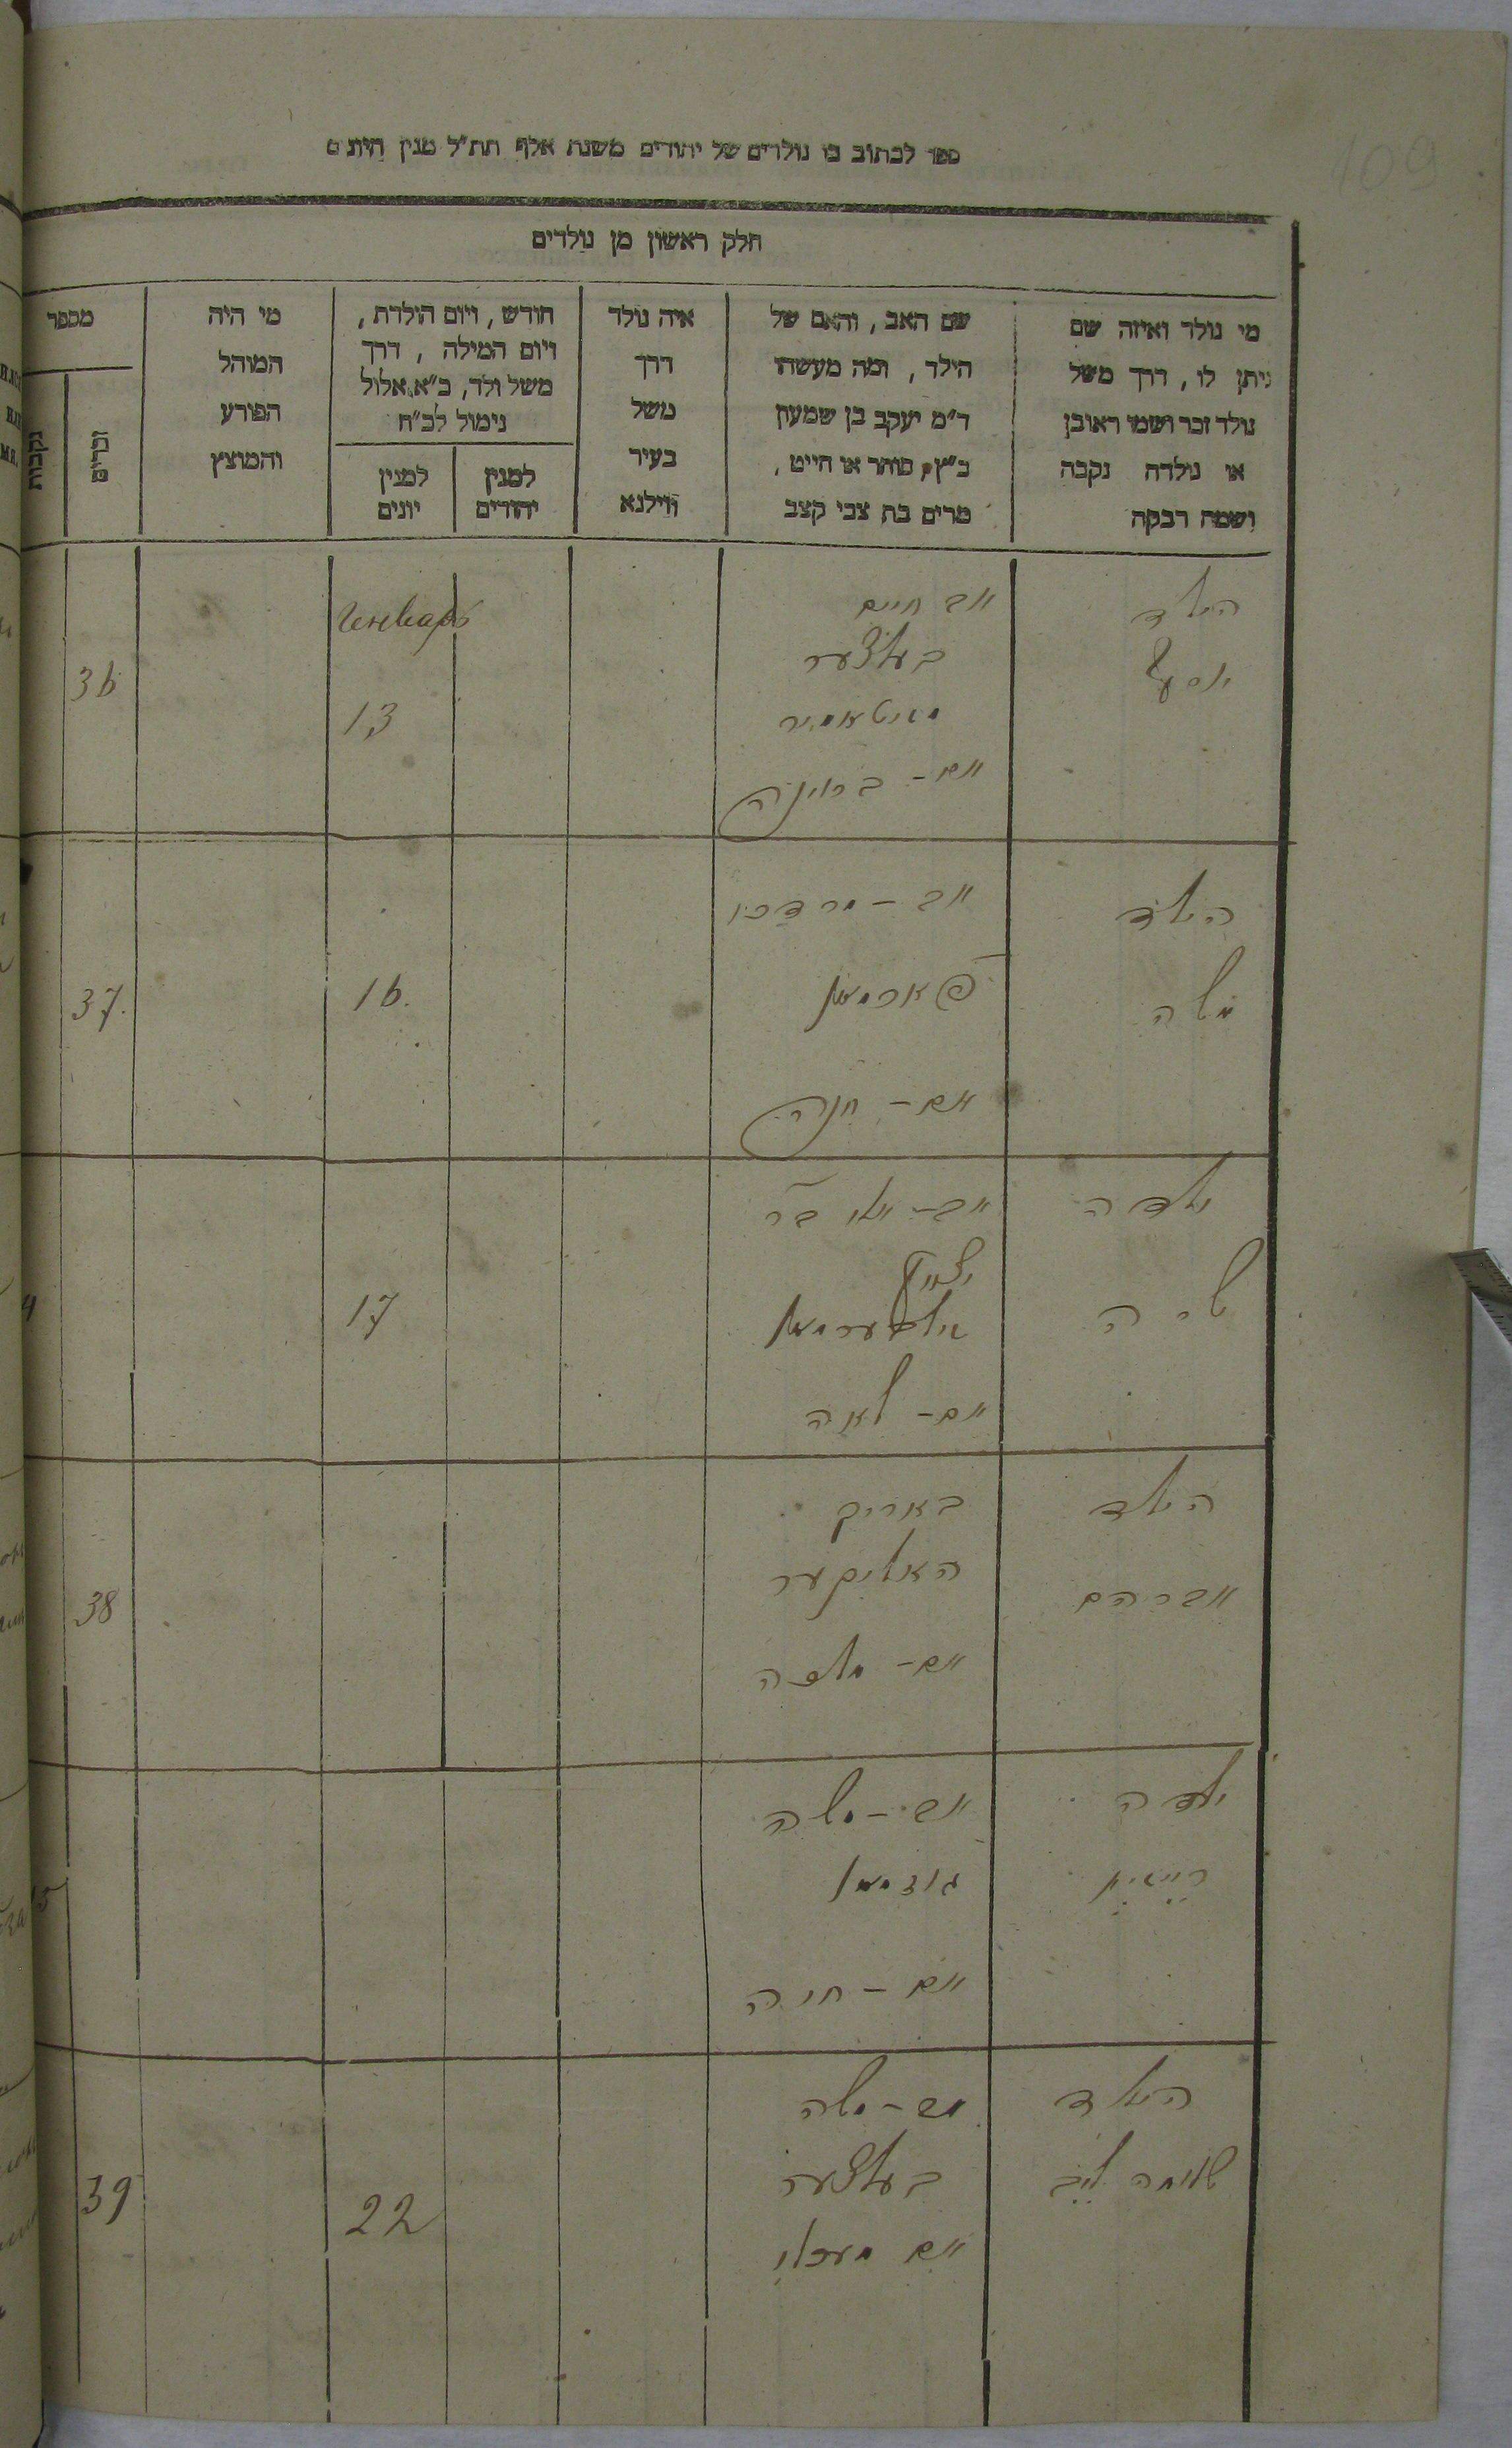 109
ספר לכתוב בו נולדים של יהודים משנת אלף תת"ל מנין היונים
חלק ראשון מן נולדים
מי נולד ואיזה שם
ניתן לו, דרך משל
נולד זכר ושמו ראובן
או נולדה נקבה
ושמה רבקה
שם האב, והאם של
הילד, ומה מעשהו
ד"מ יעקב בן שמעון
כ"ץ, סוחר או חייט,
מרים בת צבי קצב
איה נולד
דרך
משל
בעיר
ווילנא
חודש, ויום הולדת,
ויום המילה, דרך
משל ולד, כ"א אלול
נימול לכ"ח
למנין
יהודים
למנין
יונים
מי היה
המוהל
הפורע
והמוצץ
מספר
זכרים
נקבות
הילד
יוסף
אב חיים
בעלצער
אם - בריינה
Генварь
13
36
הילד
משה
אב - מרדכי
פארמאן
אם - חנה
16.
37.
ילדה
שרה
אב - יואל בר
יצחק
אם - לאה
17
4
הילד
אברהם
באריק
האליקער
אם - מלכה
38
ילדה
אב - משה
גוזמאן
אם - חיה
5
הילד
שמחה לייב
אב - משה
בעלצער
אם
22
39